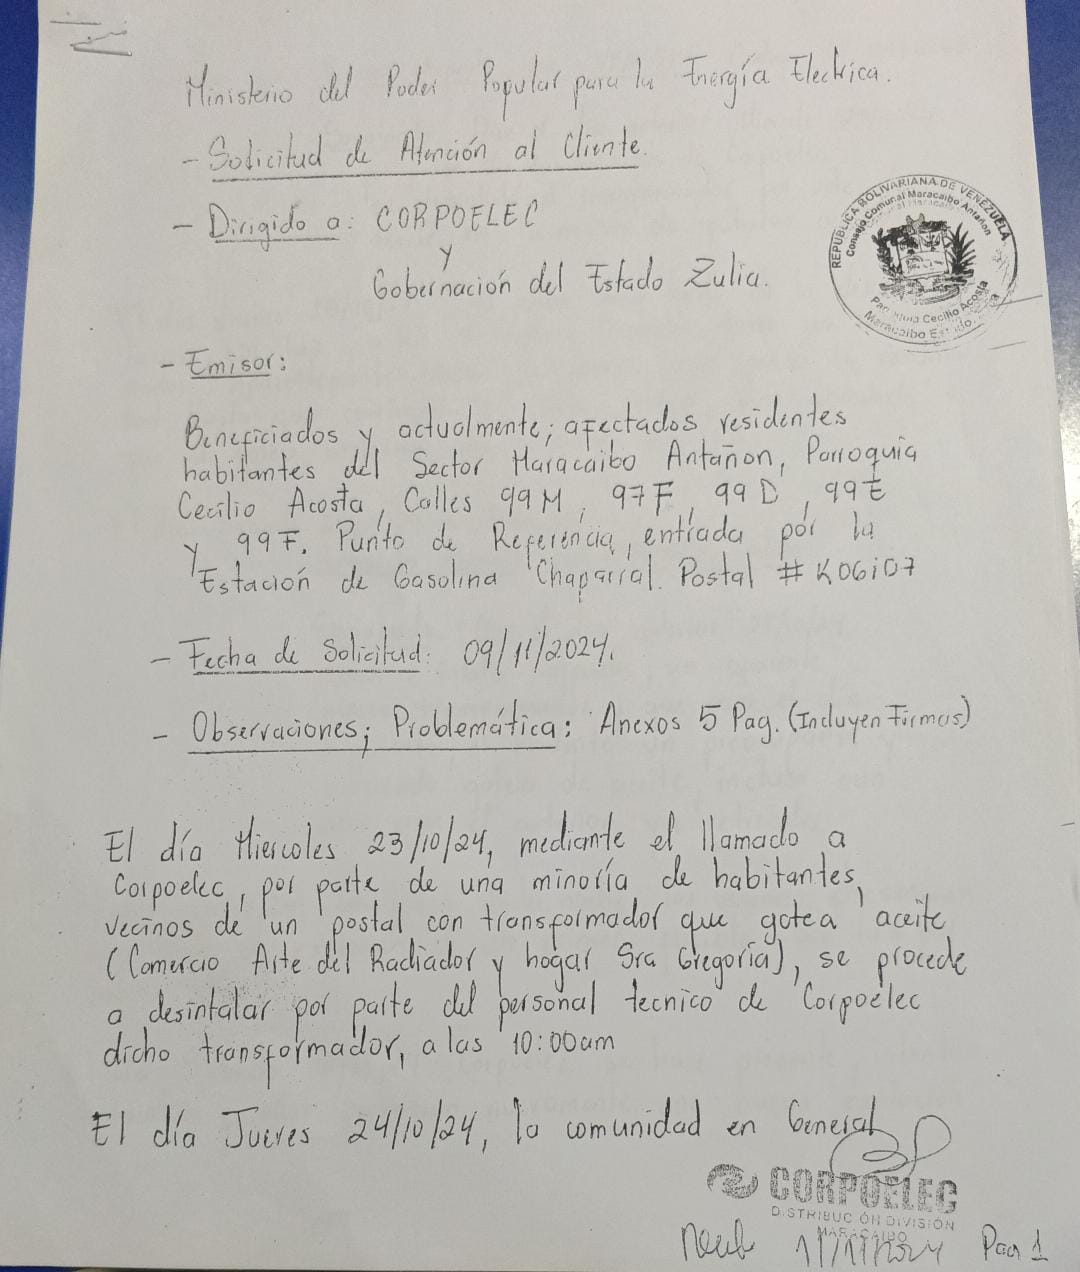 Ministerio del Poder Popular para la Energía Electrica.
- Solicitud de Atención al Cliente.
- Dirigido a: CORPOELEC
y
Gobernación del Estado Zulia.
REPUBLICA BOLIVARIANA DE VENEZUELA
Consejo Comunal Maracaibo Antañon
Cecilio Acosta
Maracaibo
- Emisor:
Beneficiados y actualmente; afectados residentes
habitantes del Sector Maracaibo Antañon, Parroquia
Cecilio Acosta, Calles 99M, 97F, 99D, 99E
y 99F. Punto de Referencia, entrada por la
Estación de Gasolina Chaparral. Postal # K06i07
- Fecha de Solicitud: 09/11/2024.
- Observaciones; Problemática: Anexos 5 Pag. (Incluyen Firmas)
El día Miercoles 23/10/24, mediante el llamado a
Corpoelec, por parte de una minoría de habitantes,
vecinos de un postal con transformador que gotea aceite
(Comercio Arte del Radiador y hogar Sra Gregoria), se procede
a desintalar por parte del personal tecnico de Corpoelec
dicho transformador, a las 10:00am
El día Jueves 24/10/24, la comunidad en General
CORPOELEC
DISTRIBUCIÓN DIVISIÓN
MARACAIBO
11/11/2024 Pag 1